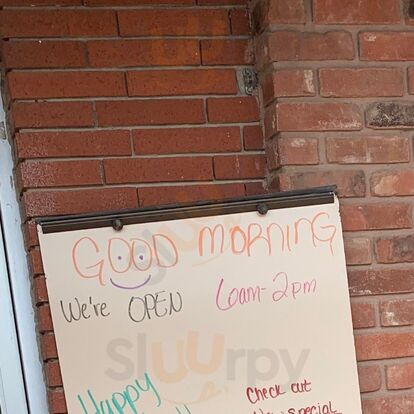 GOOD MORNING
We're OPEN 6am-2pm
Happy
Check out
New Special
Sluurpy